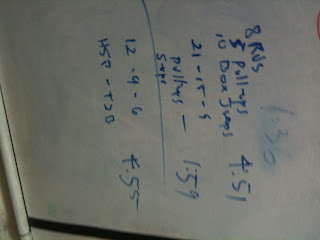 1:30
8 RDS
5 pullups
10 Box Jumps 4:51
21-15-9
pullups - 1:59
Situps
12-9-6 4:55
HSP-T2B